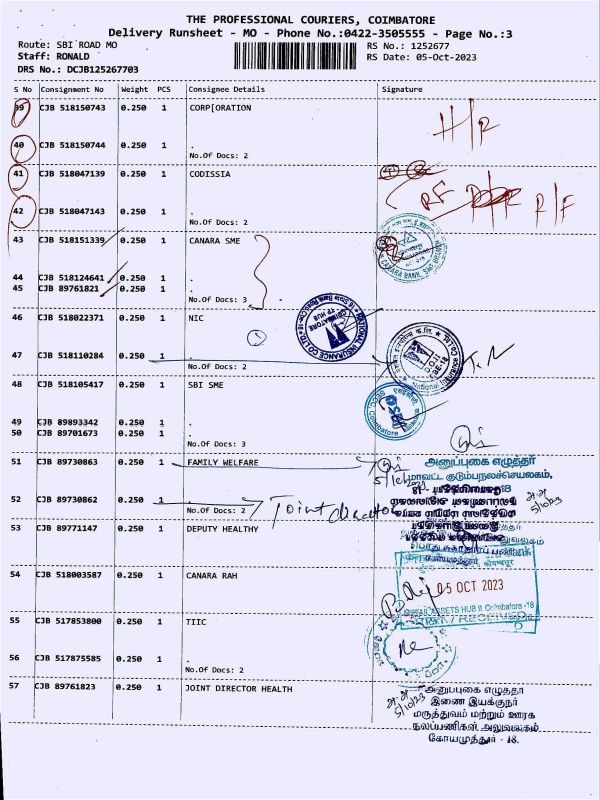 THE PROFESSIONAL COURIERS, COIMBATORE
Delivery Runsheet - MO - Phone No.:0422-3505555 - Page No.:3
Route: SBI ROAD MO
RS No.: 1252677
Staff: RONALD
RS Date: 05-Oct-2023
DRS No.: DCJB125267703
S No Consignment No Weight PCS Consignee Details Signature
39 CJB 518150743 0.250 1 CORP[ORATION
40 CJB 518150744 0.250 1 .
No.Of Docs: 2
41 CJB 518047139 0.250 1 CODISSIA
R/F
42 CJB 518047143 0.250 1 .
No.Of Docs: 2
43 CJB 518151339 0.250 1 CANARA SME
44 CJB 518124641 0.250 1 .
45 CJB 89761821 0.250 1 .
No.Of Docs: 3
46 CJB 518022371 0.250 1 NIC
47 CJB 518110284 0.250 1 .
No.Of Docs: 2
48 CJB 518105417 0.250 1 SBI SME
49 CJB 89893342 0.250 1 .
50 CJB 89701673 0.250 1 .
No.Of Docs: 3
51 CJB 89730863 0.250 1 FAMILY WELFARE
அனுப்புகை எழுத்தர்
மாவட்ட குடும்பநலச்செயலகம்,
52 CJB 89730862 0.250 1 .
No.Of Docs: 2
Joint director
53 CJB 89771147 0.250 1 DEPUTY HEALTHY
54 CJB 518003587 0.250 1 CANARA RAH
05 OCT 2023
RETAIL ASSETS HUB II Coimbatore -18
55 CJB 517853800 0.250 1 TIIC
56 CJB 517875585 0.250 1 .
No.Of Docs: 2
57 CJB 89761823 0.250 1 JOINT DIRECTOR HEALTH
5/10/23
அனுப்புகை எழுத்தர்
இணை இயக்குநர்
மருத்துவம் மற்றும் ஊரக
நலப்பணிகள் அலுவலகம்
கோயமுத்தூர் - 18.